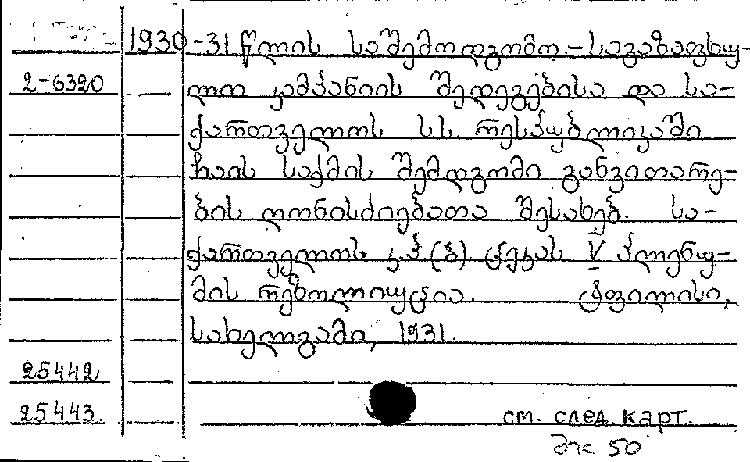 1930-31 წლის საშემოდგომო-საგაზაფხუ-
2-6320 ლო კამპანიის შედეგებისა და სა-
ქართველოს სს რესპუბლიკაში
ჩაის საქმის შემდგომი განვითარე-
ბის ღონისძიებათა შესახებ. სა-
ქართველოს კპ(ბ) ცეკას V პლენუ-
მის რეზოლიუცია. ტფილისი,
სახელგამი, 1931.
25442
25443 см. след. карт.
50